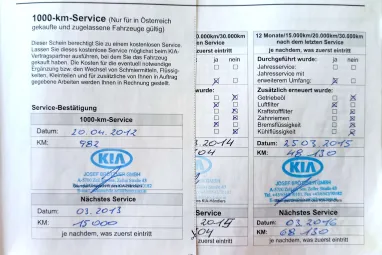 1000-km-Service (Nur für in Österreich
gekaufte und zugelassene Fahrzeuge gültig)
Dieser Schein berechtigt Sie zu einem kostenlosen Service.
Lassen Sie dieses kostenlose Service möglichst beim KIA-
Vertragspartner ausführen, bei dem Sie das Fahrzeug
gekauft haben. Die Kosten für die eventuell notwendige
Ergänzung bzw. den Wechsel von Schmiermitteln, Flüssig-
keiten, Kleinteilen und für zusätzliche von Ihnen in Auftrag
gegebene Arbeiten werden Ihnen in Rechnung gestellt.
Service-Bestätigung
1000-km-Service
Datum: 20.04.2012
KM: 982
KIA
Nächstes Service
Datum: 03.2013
KM: 15000
je nachdem, was zuerst eintritt
20.000km/30.000km
Service
zuerst eintritt
ja nein
wurde:
2014
Service
2014
was zuerst eintritt
12 Monate/15.000km/20.000km/30.000km
nach dem letzten Service
je nachdem, was zuerst eintritt
Durchgeführt wurde: ja nein
Jahresservice:
Jahresservice mit
erweitertem Umfang:
Zusätzlich erneuert wurde:
Getriebeöl
Luftfilter
Kraftstofffilter
Zahnriemen
Bremsflüssigkeit
Kühlflüssigkeit
Datum: 25.03.2015
KM: 48 130
KIA
Nächstes Service
Datum: 03.2016
KM: 68 130
je nachdem, was zuerst eintritt